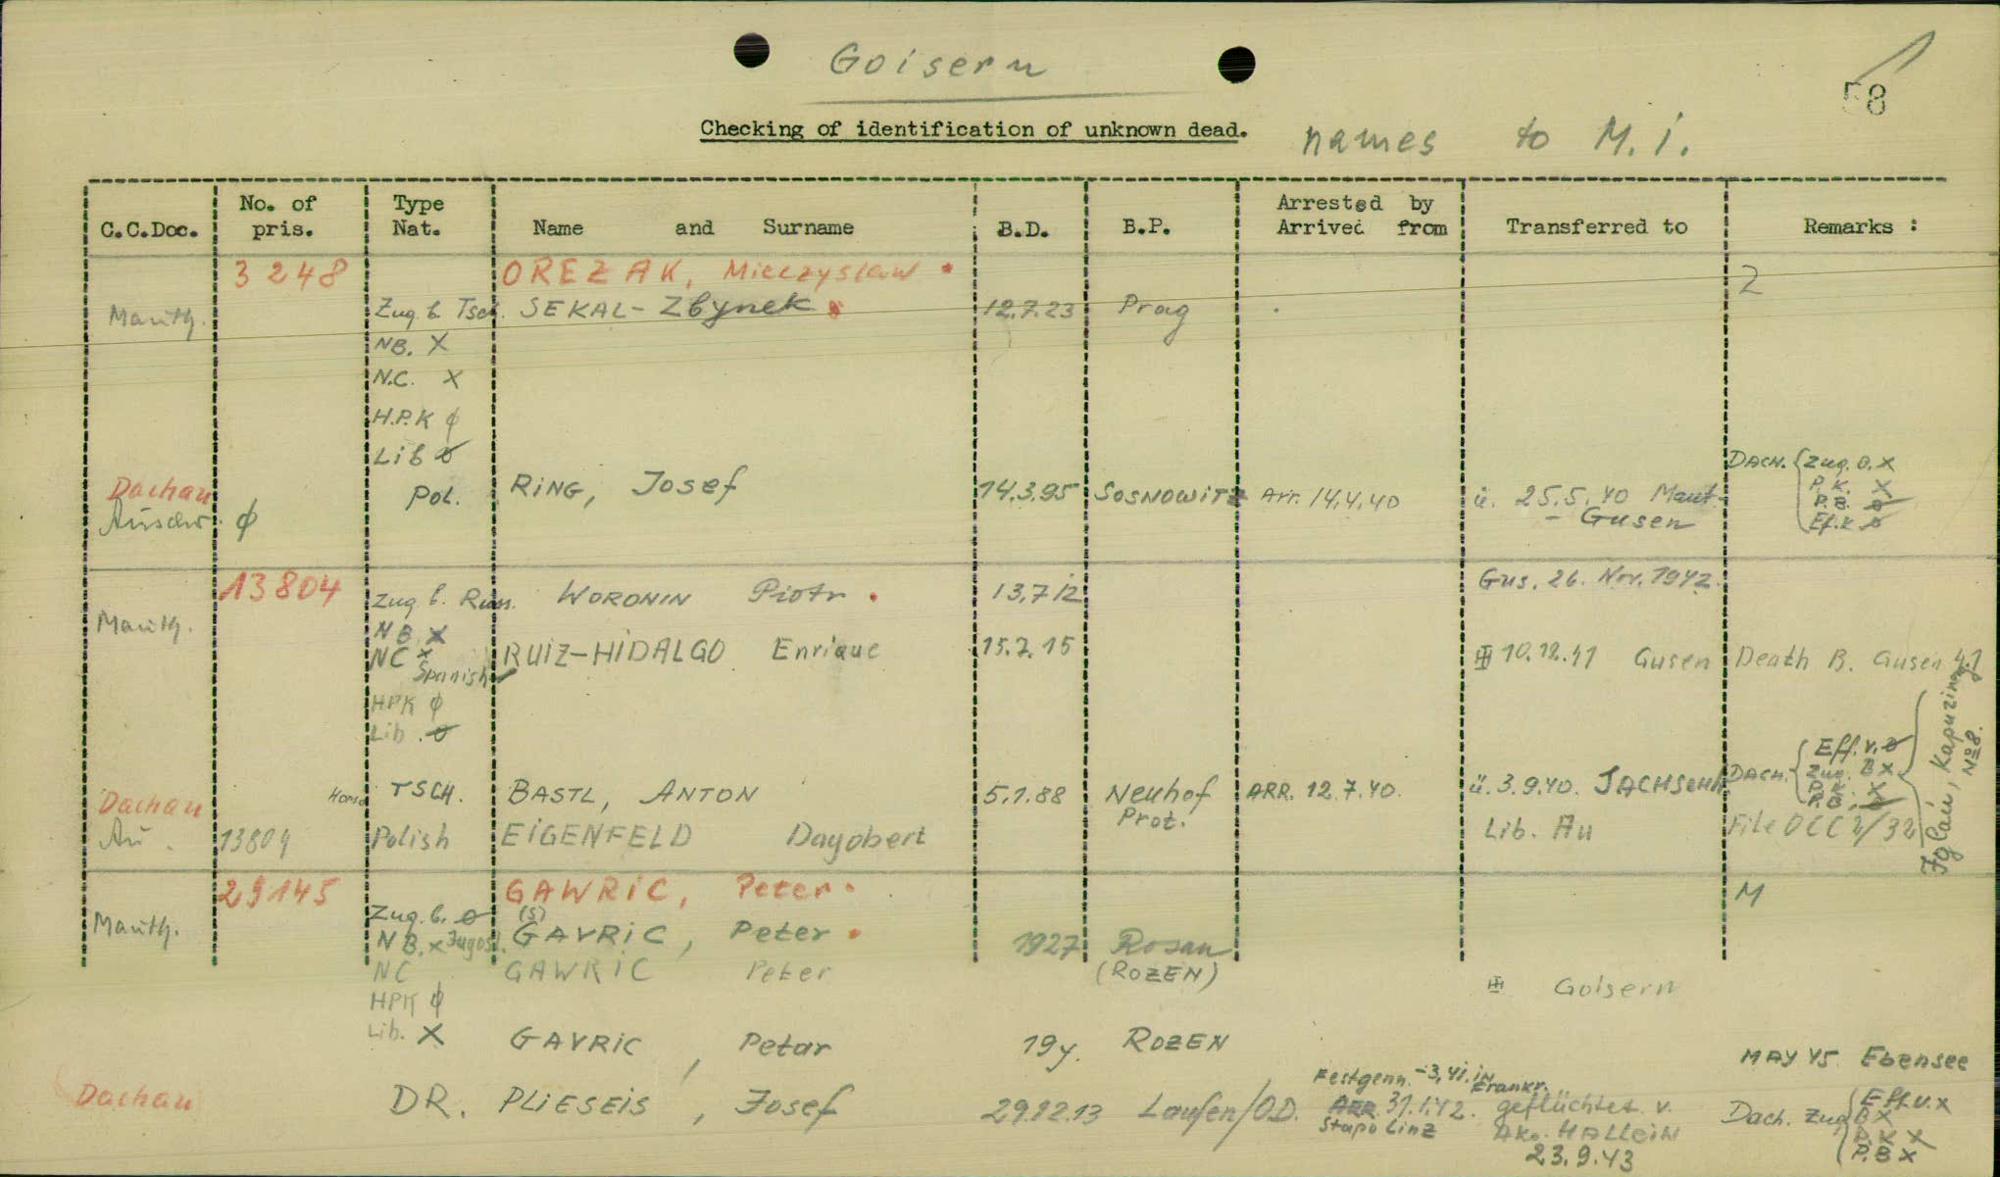 Goisern
58
Checking of identification of unknown dead.
names to M.i.
C.C.Doc.
No. of pris.
Type Nat.
Name and Surname
B.D.
B.P.
Arrested by
Arrived from
Transferred to
Remarks :
3248 OREZAK, Mieczyslaw
Mauth. Zug. b. Tsch. SEKAL - Zbynek 12.7.23 Prag Z
NB. X
N.C. X
H.P.K ϕ
Lib ø
Dachau Pol. RING, Josef 14.3.95 SOSNOWITZ Arr. 14.4.40 ü. 25.5.40 Maut-
- Gusen
Auschw. ϕ
DACH. { Zug. B. X
P.K. X
P.B. ø
Ef.K ø
13804 Zug b. Russ. WORONIN Piotr 13.7.12 Gus. 26. Nov. 1942.
Mauth.
NB X
NC X
Spanish RUIZ-HIDALGO Enrique 15.7.15 10.12.41 Gusen Death B. Gusen 4.1
HPK ϕ
Lib. ø
Dachau TSCH. BASTL, ANTON 5.1.88 Neuhof
Prot. ARR. 12.7.40. ü. 3.9.40. SACHSENH DACH. { Eff.V. ø
Zug. B X
P.K. X
P.B. ø
Iglau, Kapuzinerg
No 8.
Au. 13804 Polish EIGENFELD Dagobert Lib. Au File OCC 2/32
29145 GAWRIC, Peter M
Mauth. Zug. b. ø (S)
NB. X Jugosl. GAVRIC, Peter 1927 Rosan
(ROZEN)
NC GAWRIC Peter Goisern
HPK ϕ
Lib. X GAVRIC, Petar 19y. ROZEN MAY 45 Ebensee
Dachau DR. PLIESEIS, Josef 29.12.13 Laufen/O.D. Festgenn. -3.41. in Frankr.
ARR. 31.1.42.
Stapo Linz
geflüchtet v.
Ako. HALLEIN
23.9.43
Dach. Zug { Eff.V. X
B X
P.K X
P.B X